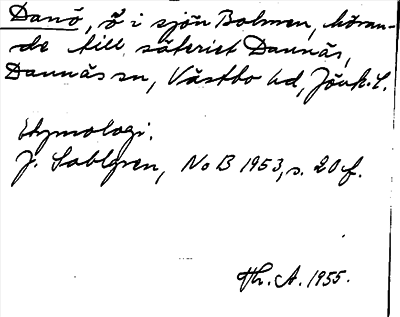 Danö, ö i sjön Bolmen, höran-
de till säteriet Dannäs,
Dannäs sn, Västbo hd, Jönk. l.
Etymologi.
J. Sahlgren, NoB 1953, s. 20 f.
Hr. A. 1955.